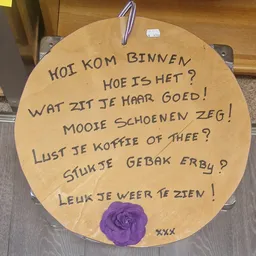 HOI KOM BINNEN
HOE IS HET?
WAT ZIT JE HAAR GOED!
MOOIE SCHOENEN ZEG!
LUST JE KOFFIE OF THEE?
STUKJE GEBAK ERBY?
LEUK JE WEER TE ZIEN!
xxx